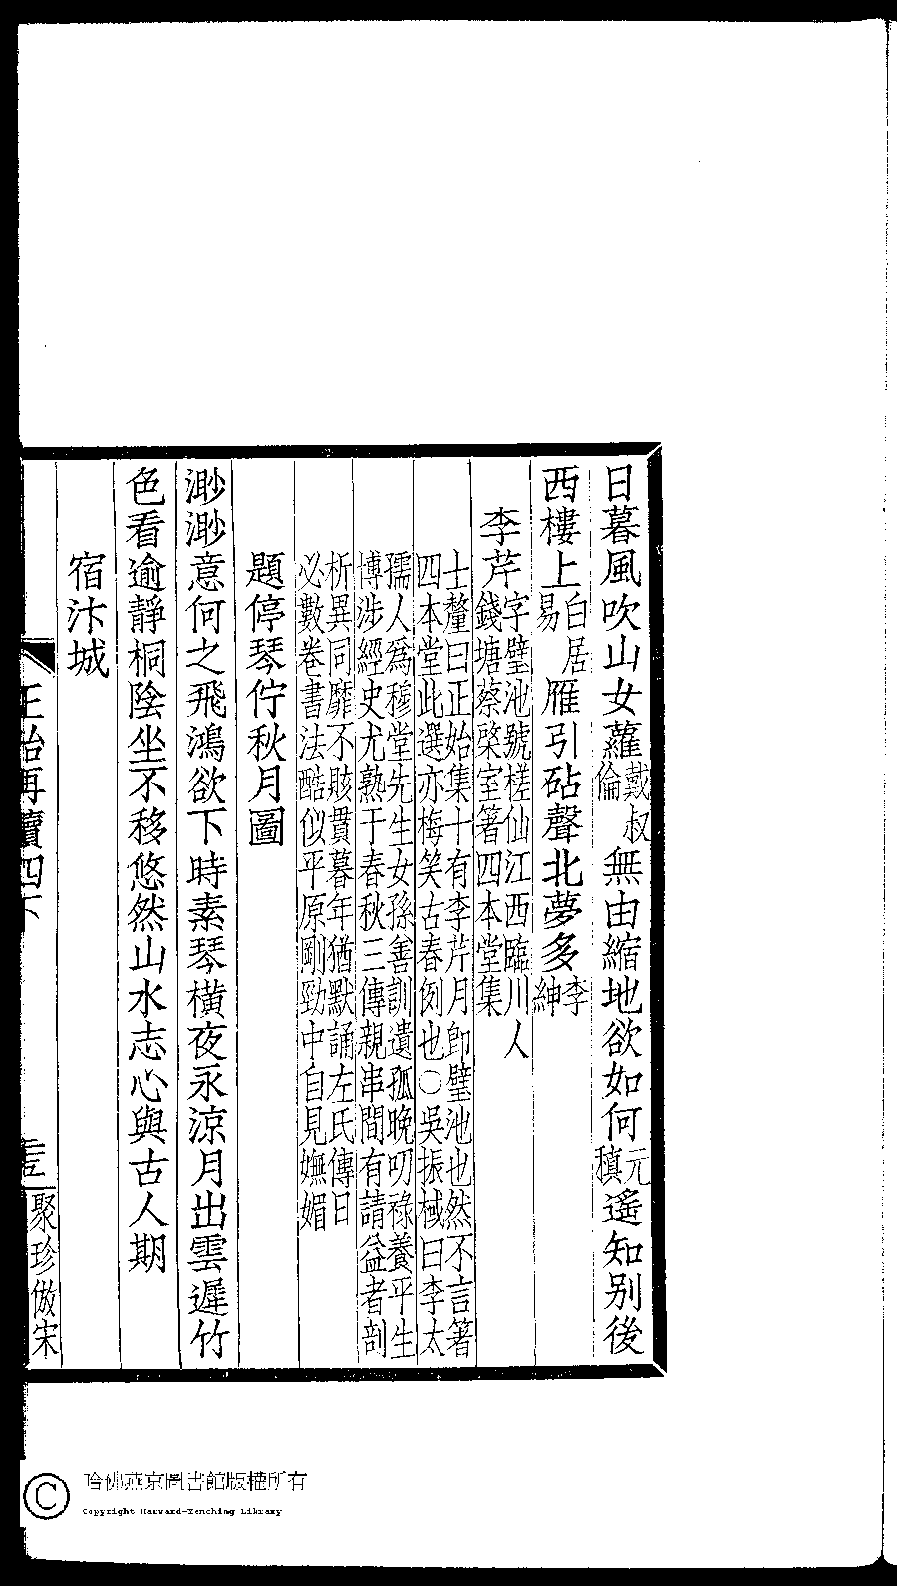 日暮風吹山女蘿戴叔倫無由縮地欲如何元稹遙知别後
西樓上白居易雁引砧聲北夢多李紳
李芹字璧池號槎仙江西臨川人錢塘蔡棨室箸四本堂集
士釐曰正始集十有李芹月卽璧池也然不言箸
四本堂此選亦梅笑古春例也○吳振棫曰李太
孺人爲穆堂先生女孫善訓遺孤晚叨祿養平生
博涉經史尤熟于春秋三傳親串間有請益者剖
析異同靡不賅貫暮年猶默誦左氏傳日
必數卷書法酷似平原剛勁中自見嫵媚
題停琴佇秋月圖
渺渺意何之飛鴻欲下時素琴横夜永涼月出雲遲竹
色看逾靜桐陰坐不移悠然山水志心與古人期
宿汴城
正始再續四下
聚珍倣宋
哈佛燕京圖書館版權所有
Copyright Harvard-Yenching Library